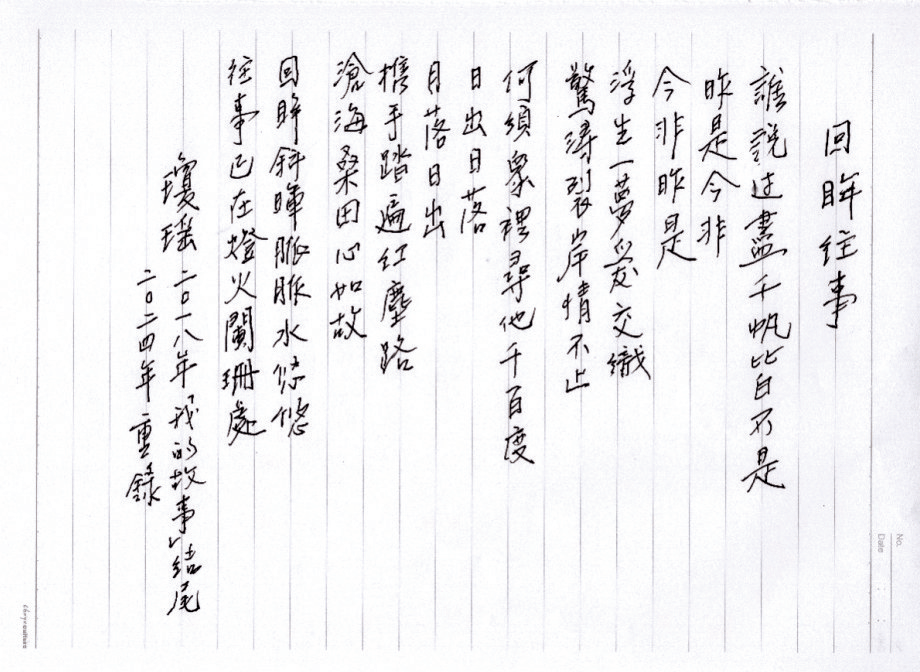 回眸往事
誰説过盡千帆皆不是
昨是今非
今非昨是
浮生一夢愛交織
驚濤裂岸情不止
何須衆裡尋他千百度
日出日落
月落日出
携手踏遍紅塵路
滄海桑田心如故
回眸斜暉脈脈水悠悠
往事已在燈火闌珊處
瓊瑤 二〇一八年「我的故事」結尾
二〇二四年重錄
No.
Date